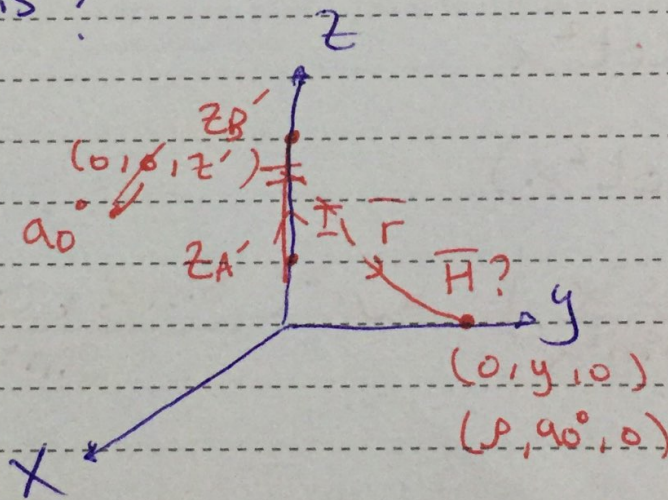 is?
Z
ZB′
(0, ϕ, z′)
90°
I
r̅
ZA′
H̅?
y
(0, y, 0)
(ρ, 90°, 0)
X